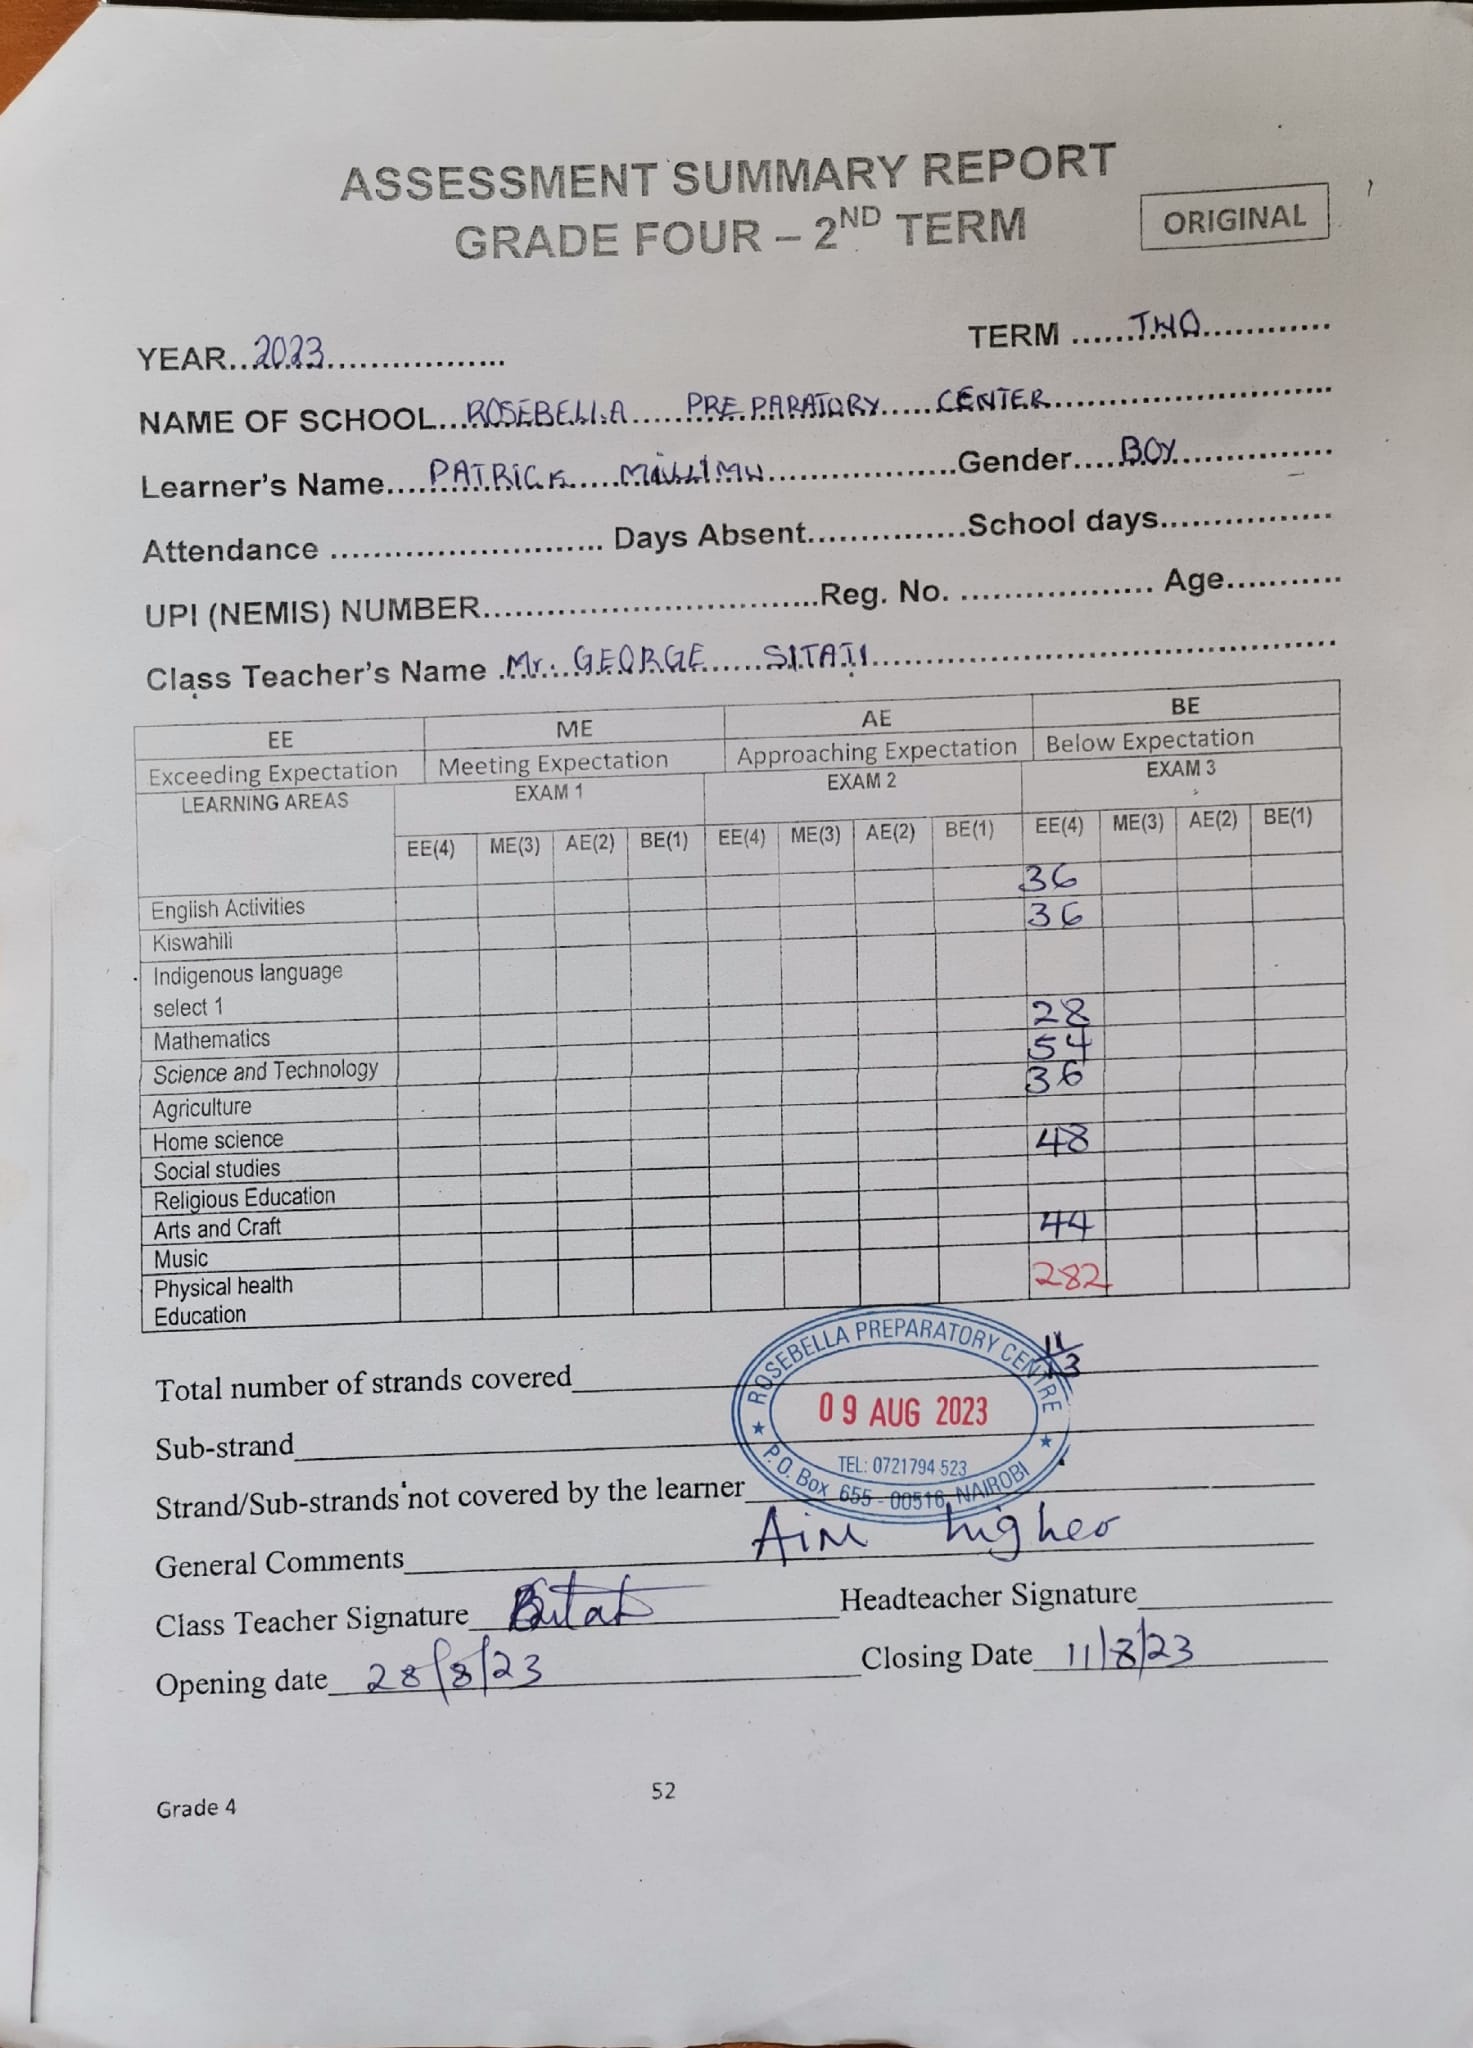 ASSESSMENT SUMMARY REPORT
GRADE FOUR – 2ND TERM
ORIGINAL
YEAR...2023..................
TERM ......TWO............
NAME OF SCHOOL...ROSEBELLA.....PREPARATORY.....CENTER........................
Learner's Name....PATRICK.....................Gender.....BOY.............
Attendance .......................... Days Absent...............School days................
UPI (NEMIS) NUMBER................................Reg. No. .................. Age...........
Class Teacher's Name .Mr. GEORGE......SITATI............................................
EE ME AE BE
Exceeding Expectation Meeting Expectation Approaching Expectation Below Expectation
LEARNING AREAS EXAM 1 EXAM 2 EXAM 3
EE(4) ME(3) AE(2) BE(1) EE(4) ME(3) AE(2) BE(1) EE(4) ME(3) AE(2) BE(1)
English Activities 36
Kiswahili 36
Indigenous language
select 1
Mathematics 28
Science and Technology 54
Agriculture 36
Home science
Social studies 48
Religious Education
Arts and Craft
Music 44
Physical health 282
Education
Total number of strands covered 11/13
Sub-strand
Strand/Sub-strands not covered by the learner
ROSEBELLA PREPARATORY CENTRE
09 AUG 2023
TEL: 0721794 523
P.O. Box 655 - 00516, NAIROBI
General Comments Aim higher
Class Teacher Signature Headteacher Signature
Opening date 28/8/23 Closing Date 11/8/23
Grade 4 52